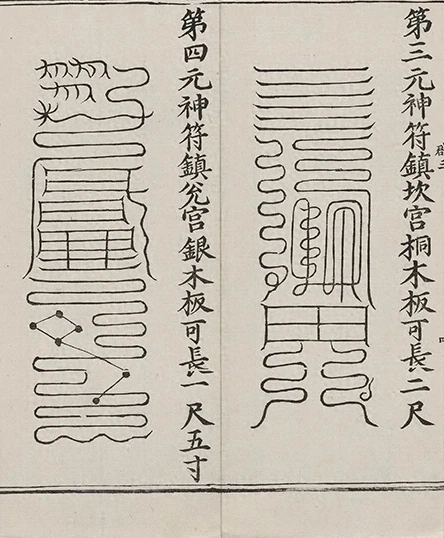 第三元神符鎮坎宮桐木板可長二尺
第四元神符鎮兊宮銀木板可長一尺五寸